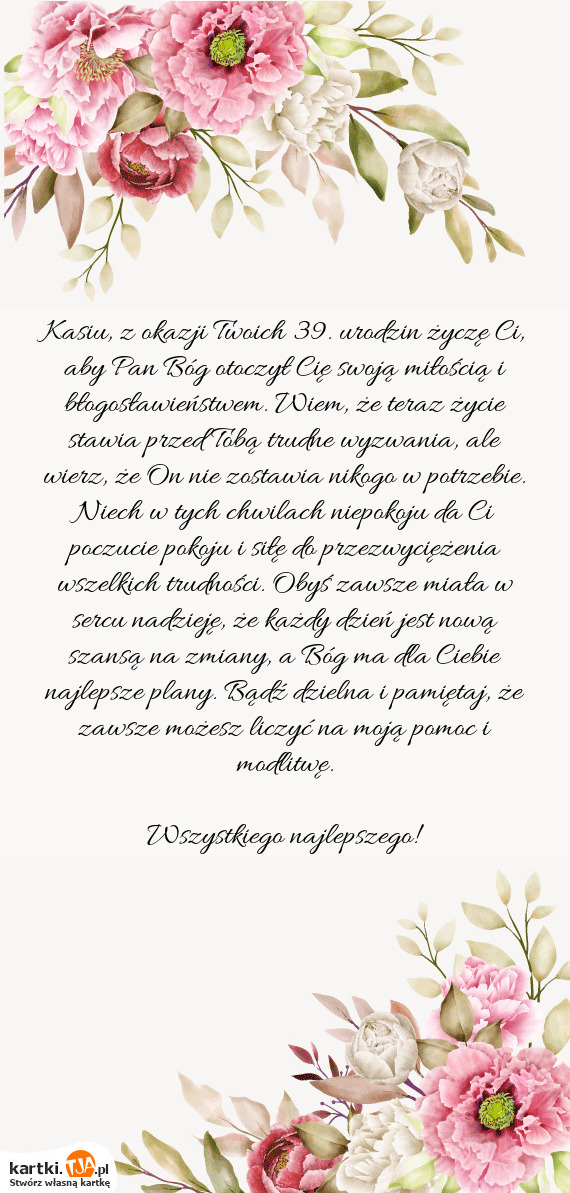 Kasiu, z okazji Twoich 39. urodzin życzę Ci,
aby Pan Bóg otoczył Cię swoją miłością i
błogosławieństwem. Wiem, że teraz życie
stawia przed Tobą trudne wyzwania, ale
wierz, że On nie zostawia nikogo w potrzebie.
Niech w tych chwilach niepokoju da Ci
poczucie pokoju i siłę do przezwyciężenia
wszelkich trudności. Obyś zawsze miała w
sercu nadzieję, że każdy dzień jest nową
szansą na zmiany, a Bóg ma dla Ciebie
najlepsze plany. Bądź dzielna i pamiętaj, że
zawsze możesz liczyć na moją pomoc i
modlitwę.
Wszystkiego najlepszego!
kartki.TJA.pl
Stwórz własną kartkę